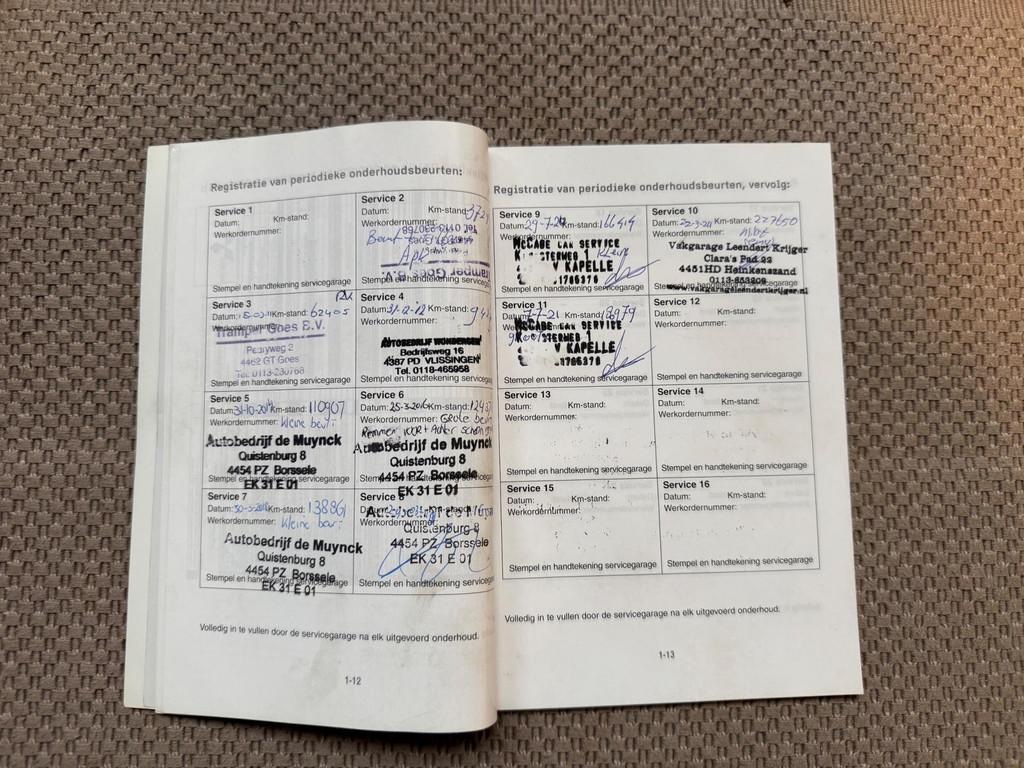 Registratie van periodieke onderhoudsbeurten:
Service 1
Datum: Km-stand:
Werkordernummer:
Stempel en handtekening servicegarage
Service 2
Datum: Km-stand:
Werkordernummer:
Tramper Goes B.V.
Stempel en handtekening servicegarage
Service 3
Datum: Km-stand: 62405
Werkordernummer:
Tramper Goes B.V.
4462 GT Goes
Tel. 0113-230768
Stempel en handtekening servicegarage
Service 4
Datum: 31-12-12 Km-stand:
Werkordernummer:
AUTOBEDRIJF WONDERGEM
Bedrijfsweg 16
4387 PD VLISSINGEN
Tel. 0118-465958
Stempel en handtekening servicegarage
Service 5
Datum: 31-10-2014 Km-stand: 110907
Werkordernummer: Kleine beurt
Autobedrijf de Muynck
Quistenburg 8
4454 PZ Borssele
Stempel en handtekening servicegarage
EK 31 E 01
Service 6
Datum: 25-3-2016 Km-stand:
Werkordernummer: Grote beurt
Autobedrijf de Muynck
Quistenburg 8
4454 PZ Borssele
Stempel en handtekening servicegarage
EK 31 E 01
Service 7
Datum: Km-stand: 138861
Werkordernummer: Kleine beurt
Autobedrijf de Muynck
Quistenburg 8
4454 PZ Borssele
Stempel en handtekening servicegarage
EK 31 E 01
Service 8
Datum: Km-stand:
Werkordernummer:
Autobedrijf de
Quistenburg 8
4454 PZ Borssele
EK 31 E 01
Stempel en handtekening servicegarage
Volledig in te vullen door de servicegarage na elk uitgevoerd onderhoud.
1-12
Registratie van periodieke onderhoudsbeurten, vervolg:
Service 9
Datum: Km-stand: 166419
Werkordernummer:
McCABE CAR SERVICE
V KAPELLE
Stempel en handtekening servicegarage
Service 10
Datum: 22-3-24 Km-stand: 227650
Werkordernummer:
Vakgarage Leendert Krijger
Clara's Pad 22
4451HD Heinkenszand
Stempel en handtekening servicegarage
www.vakgarageleendertkrijger.nl
Service 11
Datum: 7-7-21 Km-stand:
Werkordernummer:
McCABE CAR SERVICE
V KAPELLE
Stempel en handtekening servicegarage
Service 12
Datum: Km-stand:
Werkordernummer:
Stempel en handtekening servicegarage
Service 13
Datum: Km-stand:
Werkordernummer:
Stempel en handtekening servicegarage
Service 14
Datum: Km-stand:
Werkordernummer:
Stempel en handtekening servicegarage
Service 15
Datum: Km-stand:
Werkordernummer:
Stempel en handtekening servicegarage
Service 16
Datum: Km-stand:
Werkordernummer:
Stempel en handtekening servicegarage
Volledig in te vullen door de servicegarage na elk uitgevoerd onderhoud.
1-13